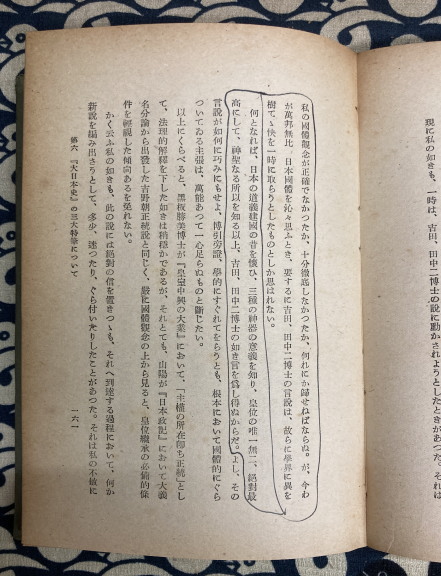 現に私の如きも、一時は、吉田、田中二博士の說に動かされようとしたときがあつた。それは
私の國體觀念が正確でなかつたか、十分徹底しなかつたか、何れにか歸せねばならぬ。が、今わ
が萬邦無比 日本國體を沁々思ふとき、要するに吉田、田中二博士の言說は、故らに學界に異を
樹てゝ快を一時に取らうとしたものとしか思はれない。
何となれば、日本の道義建國の昔を懷ひ、三種の神器の意義を知り、皇位の唯一無二、絕對最
高にして、神聖なる所以を知る以上、吉田、田中二博士の如き言を爲し得ぬからだ。よし、その
言說が如何に巧みにもせよ、博引旁證、學的にすぐれてをらうとも、根本において國體的にぐら
ついてゐる主張は、萬能あつて一心足らぬものと斷じたい。
以上にくらべると、黑板勝美博士が『皇室中興の大業』において、「主權の所在卽ち正統」とし
て、法理的解釋を下した如きは稍穩かであるが、それとても、山陽が『日本政記』において大義
名分論から出發した吉野朝正統說と同じく、嚴に國體觀念の上から見ると、皇位繼承の必須的條
件を輕視した傾向あるを免れない。
かく云ふ私の如きも、此の說には絕對の信を置きつゝも、それへ到達する過程において、何か
新說を編み出さうとして、多少、迷つたり、ぐら付いたりしたことがあつた。それは私の不敏に
第六 『大日本史』の三大特筆について
一六一